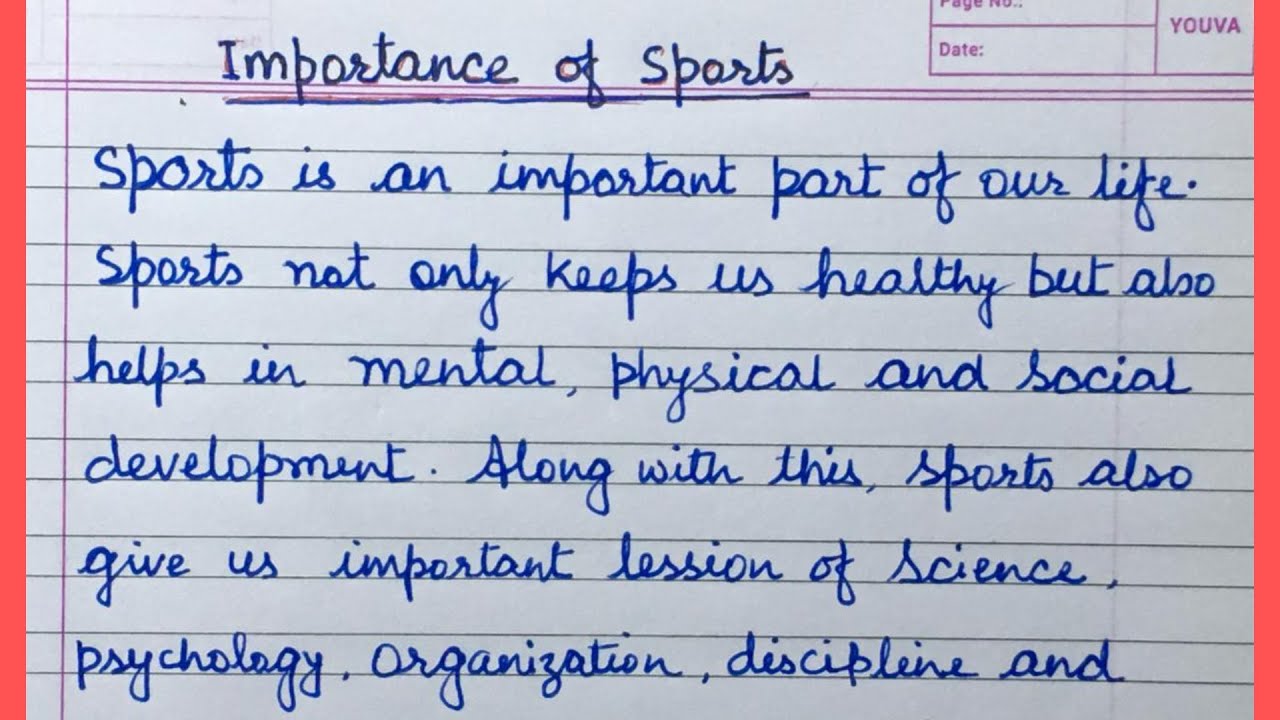 Page No.:
YOUVA
Date:
Importance of Sports
Sports is an important part of our life.
Sports not only keeps us healthy but also
helps in mental, physical and social
development. Along with this, sports also
give us important lession of science,
psychology, organization, discipline and